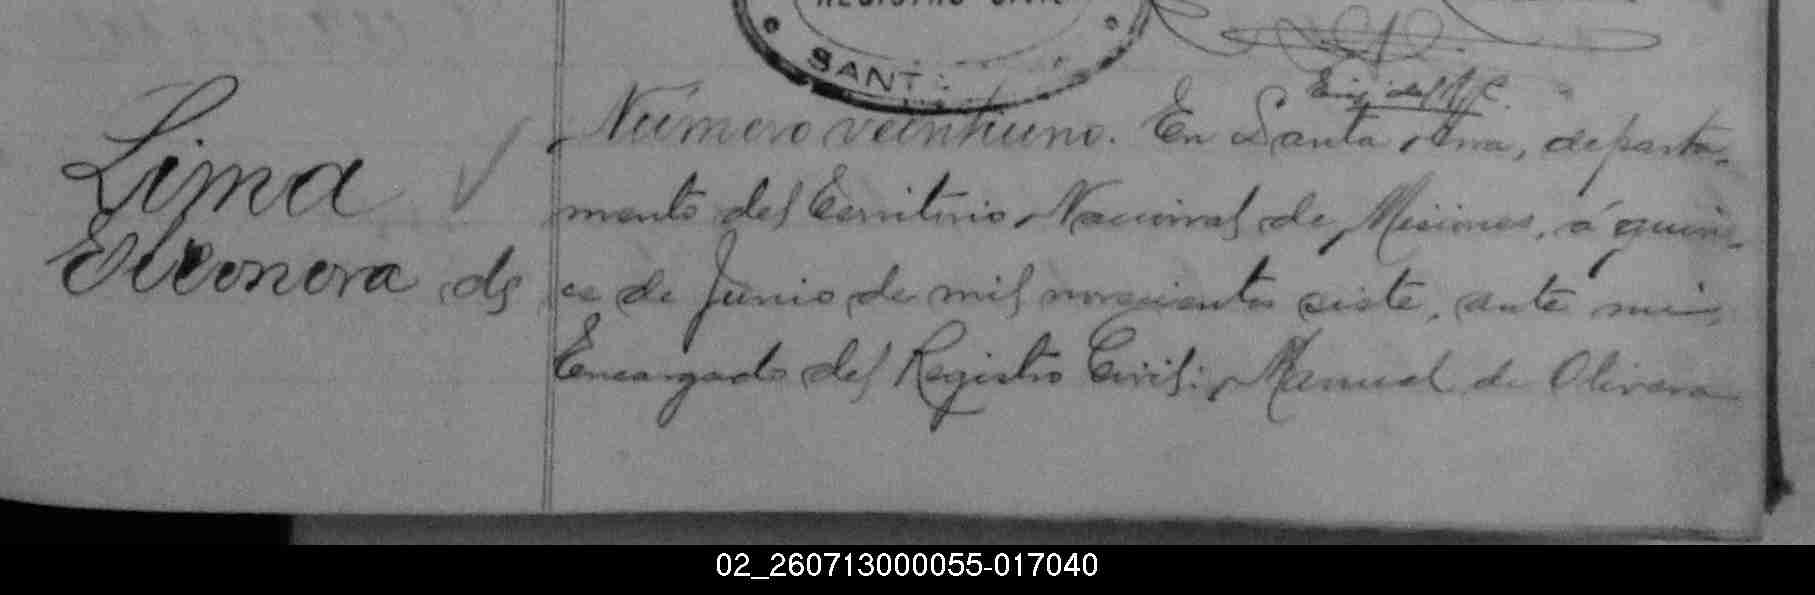 REGISTRO CIVIL
SANT
Enc. del R. C.
Lima
Eleonora de
Número veintiuno. En Santa Ana, departa-
mento del Territorio Nacional de Misiones, á quin-
ce de Junio de mil novecientos siete, ante mi,
Encargado del Registro Civil: Manuel de Olivera
02_260713000055-017040